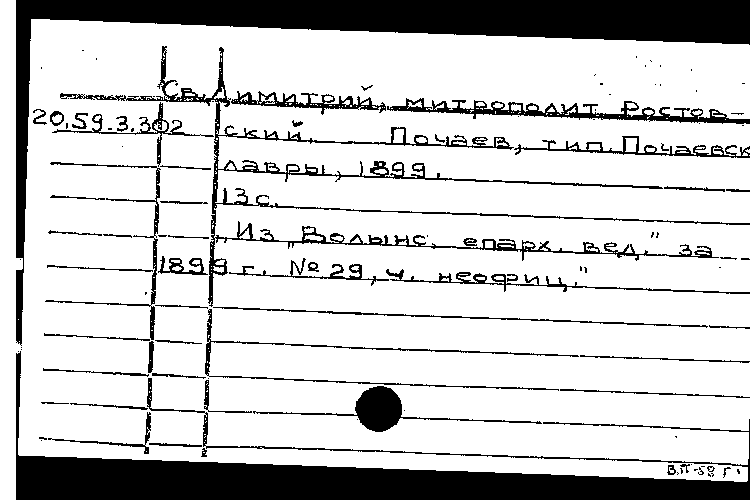 Св. Димитрий, митрополит Ростов-
20.59.3.302 ский. Почаев, тип. Почаевск
лавры, 1899.
13 с.
„Из „Волынс. епарх. вед." за
1899 г. № 29, ч. неофиц."
В.П-58 г.